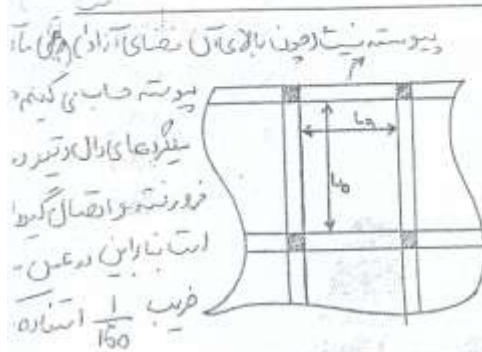 پیوسته نیست (چون بالای آن فضای آزاد است) ولی ما آن
پیوسته حساب می کنیم
میلگردهای دال و تیر در
فرورفته و اتصال گیردار
است بنابراین در عمل
ضریب 1/160 استفاده
La
Lb